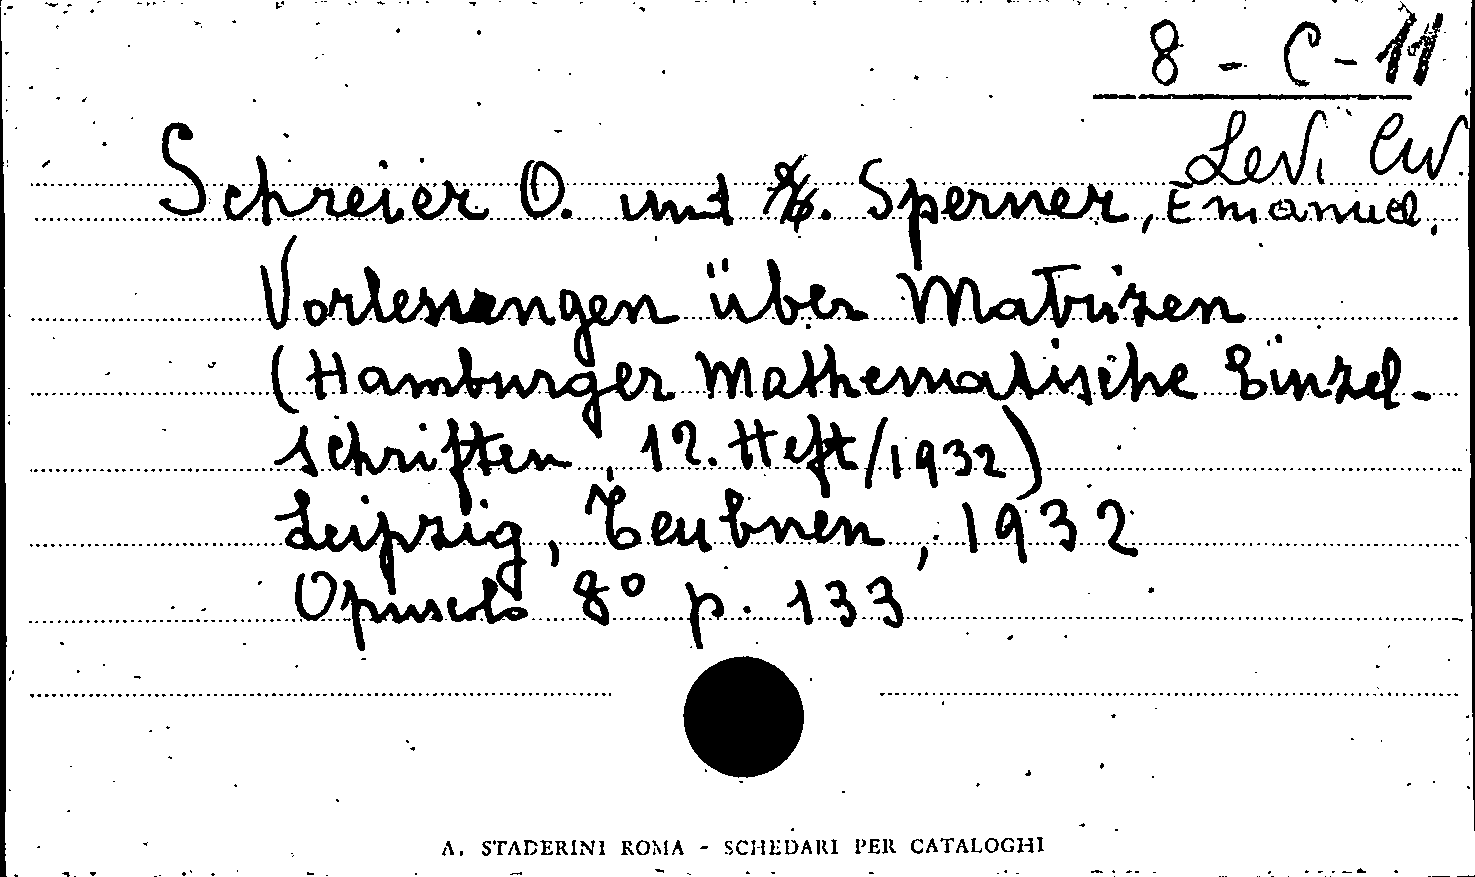 8 - C - 11
Levi Civ.
Schreier O. und E. Sperner, Emanuel.
Vorlesungen über Matrizen
(Hamburger Mathematische Einzel-
schriften, 12. Heft/1932)
Leipzig, Teubner, 1932
Opuscolo 8° p. 133
A. STADERINI ROMA - SCHEDARI PER CATALOGHI